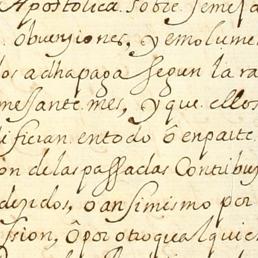 Apostolica. Sobre semeja
obuenſiones, y emolume
los adhapaga ſegun la ra
meſsante mes, y que ellos
ifician entodo ô enparte
ion delas paſsadas Contribu
dezidos, o anſimismo por
ſsion, ô por otroqualquie